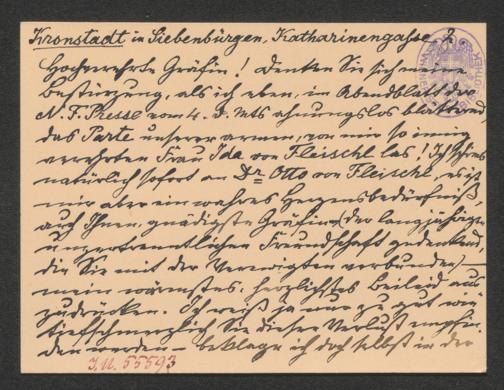 Kronstadt in Siebenbürgen, Katharinengasse 2.
Hochverehrte Gräfin! Denken Sie sich meine
Bestürzung, als ich eben, im Abendblatt der
N. F. Presse vom 4. d. Mts ahnungslos blätternd
das Parte unserer armen, von mir so innig
verehrten Frau Ida von Fleischl las! Ich schrieb
natürlich sofort an Dr Otto von Fleischl, es ist
mir aber ein wahres Herzensbedürfniß,
auch Ihnen, gnädigste Gräfin, (der langjährigen
unzertrennlichen Freundschaft gedenkend,
die Sie mit der Verewigten verbunden) —
mein wärmstes, herzlichstes Beileid aus
zudrücken. Ich weiß ja nur zu gut wie
tiefschmerzlich Sie dieser Verlust empfin
den werden — beklage ich doch selbst in der
I.N. 55593